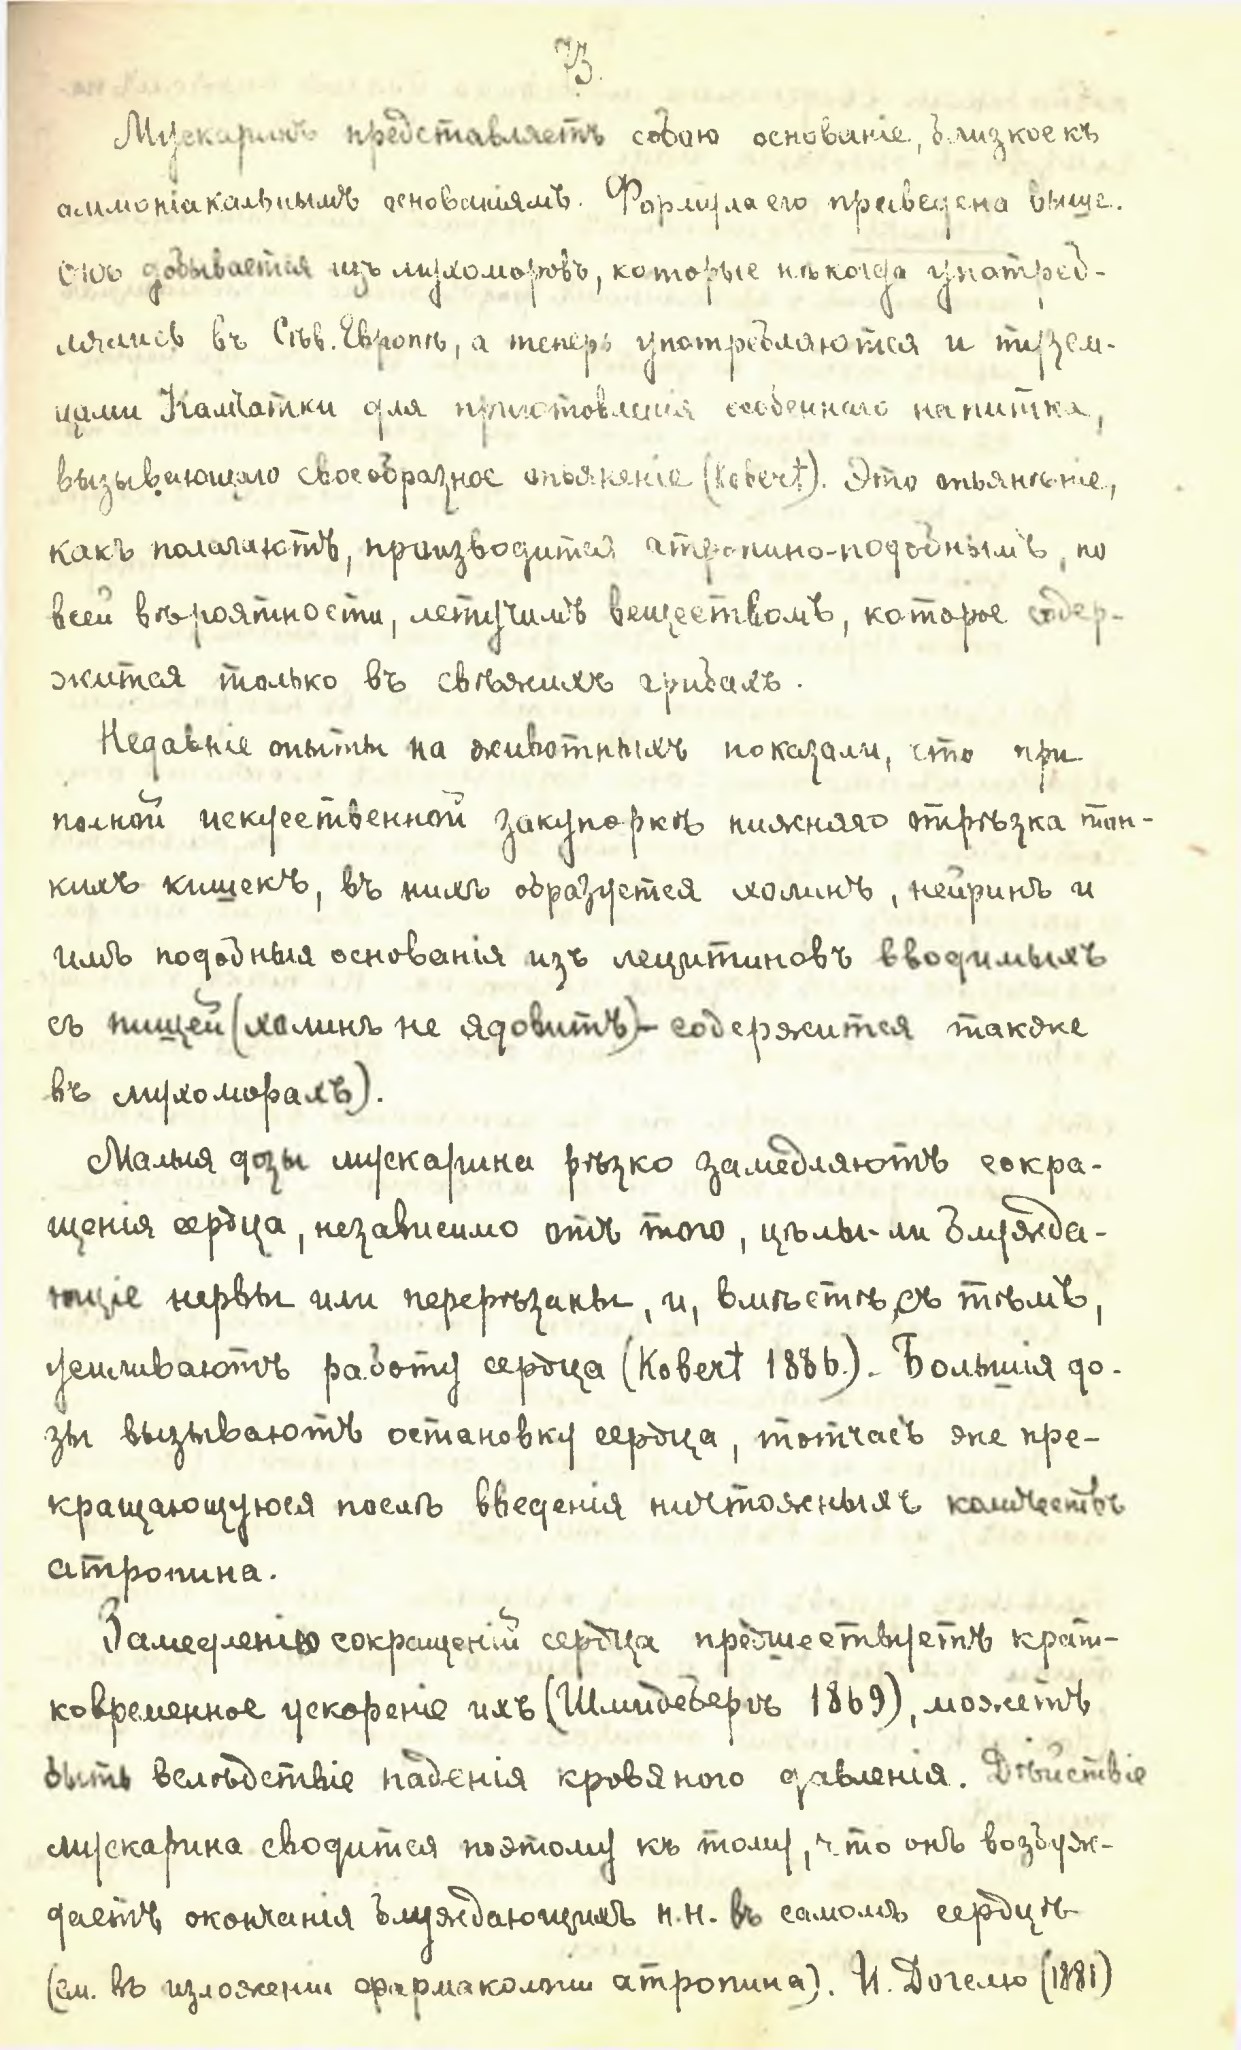 73.
Мускаринъ представляетъ собою основаніе, близкое къ
аммоніакальнымъ основаніямъ. Формула его приведена выше.
Онъ добывается изъ мухоморовъ, которые нѣкогда употреб-
лялись въ Сѣв. Европѣ, а теперь употребляются и тузем-
цами Камчатки для приготовленія особеннаго напитка,
вызывающаго своеобразное опьяненіе (Kobert). Это опьянѣніе,
какъ полагаютъ, производится атропино-подобнымъ, по
всей вѣроятности, летучимъ веществомъ, которое содер-
жится только въ свѣжихъ грибахъ.
Недавніе опыты на животныхъ показали, что при
полной искусственной закупоркѣ нижняго отрѣзка тон-
кихъ кишекъ, въ нихъ образуется холинъ, нейринъ и
имъ подобныя основанія изъ лецитиновъ вводимыхъ
съ пищей (холинъ не ядовитъ) - содержится также
въ мухоморахъ).
Малыя дозы мускарина рѣзко замедляютъ сокра-
щенія сердца, независимо отъ того, цѣлы-ли блужда-
ющіе нервы или перерѣзаны, и, вмѣстѣ съ тѣмъ,
усиливаютъ работу сердца (Kobert 1886.). Большія до-
зы вызываютъ остановку сердца, тотчасъ же пре-
кращающуюся послѣ введенія ничтожныхъ количествъ
атропина.
Замедленію сокращеній сердца предшествуетъ крат-
ковременное ускореніе ихъ (Шмидебергъ 1869), можетъ
быть вслѣдствіе паденія кровяного давленія. Дѣйствіе
мускарина сводится поэтому къ тому, что онъ возбуж-
даетъ окончанія блуждающихъ н.н. въ самомъ сердцѣ
(см. въ изложеніи фармакологіи атропина). И. Догелю (1881)